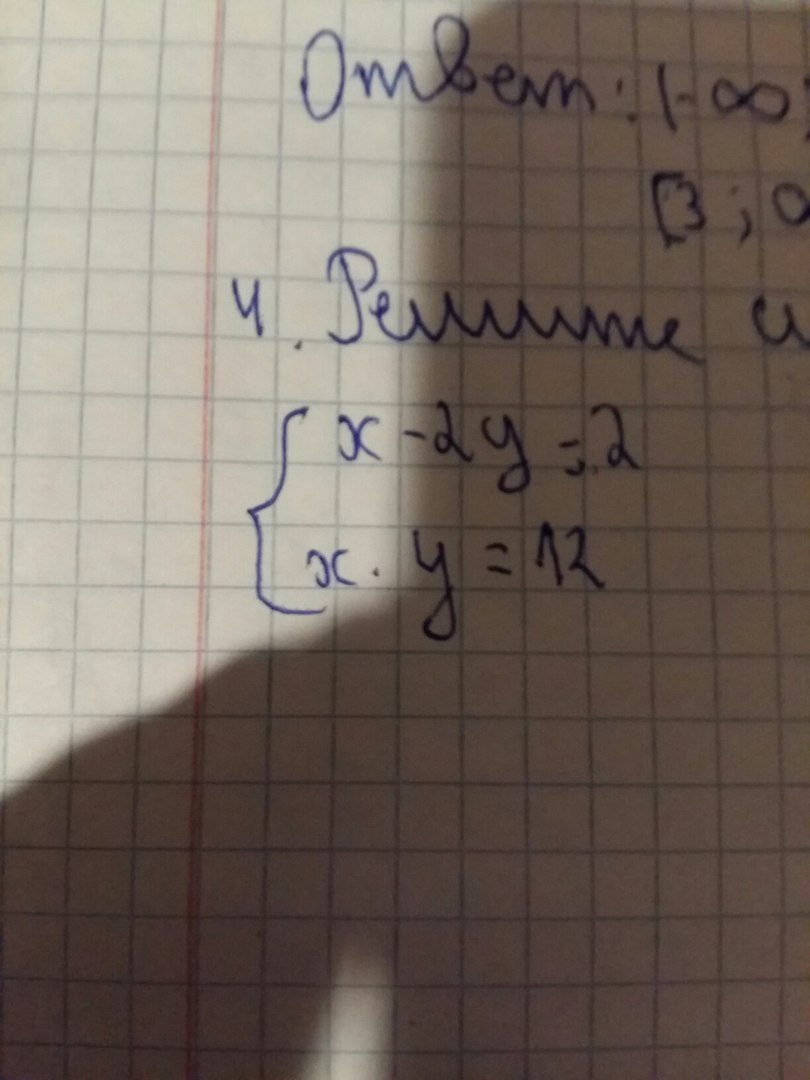 Ответ: (-∞;
[3; ∞
4. Решите
{ x - 2y = 2
x · y = 12